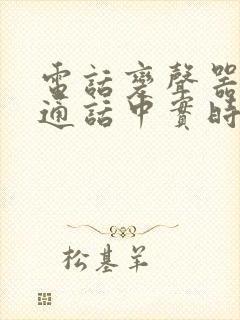 電話變聲器
通話中實時
松基羊